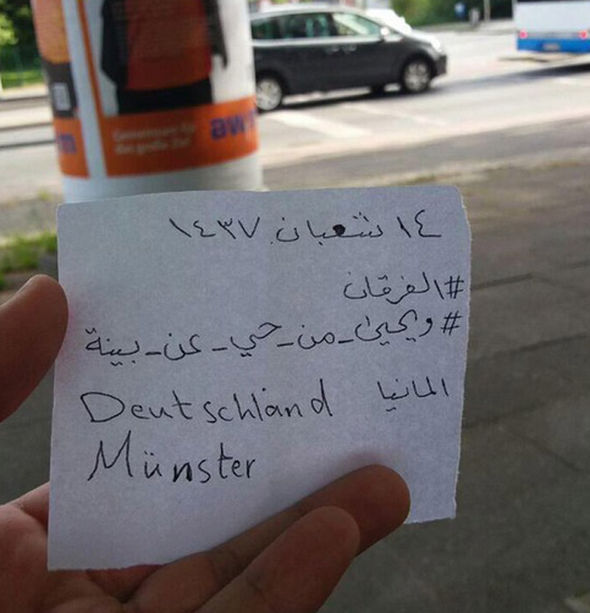 Gemeinsam für
das große Ziel
awm
١٤ شعبان ١٤٣٧
#الفرقان
#ويحيى_من_حي_عن_بينة
المانيا Deutschland
Münster